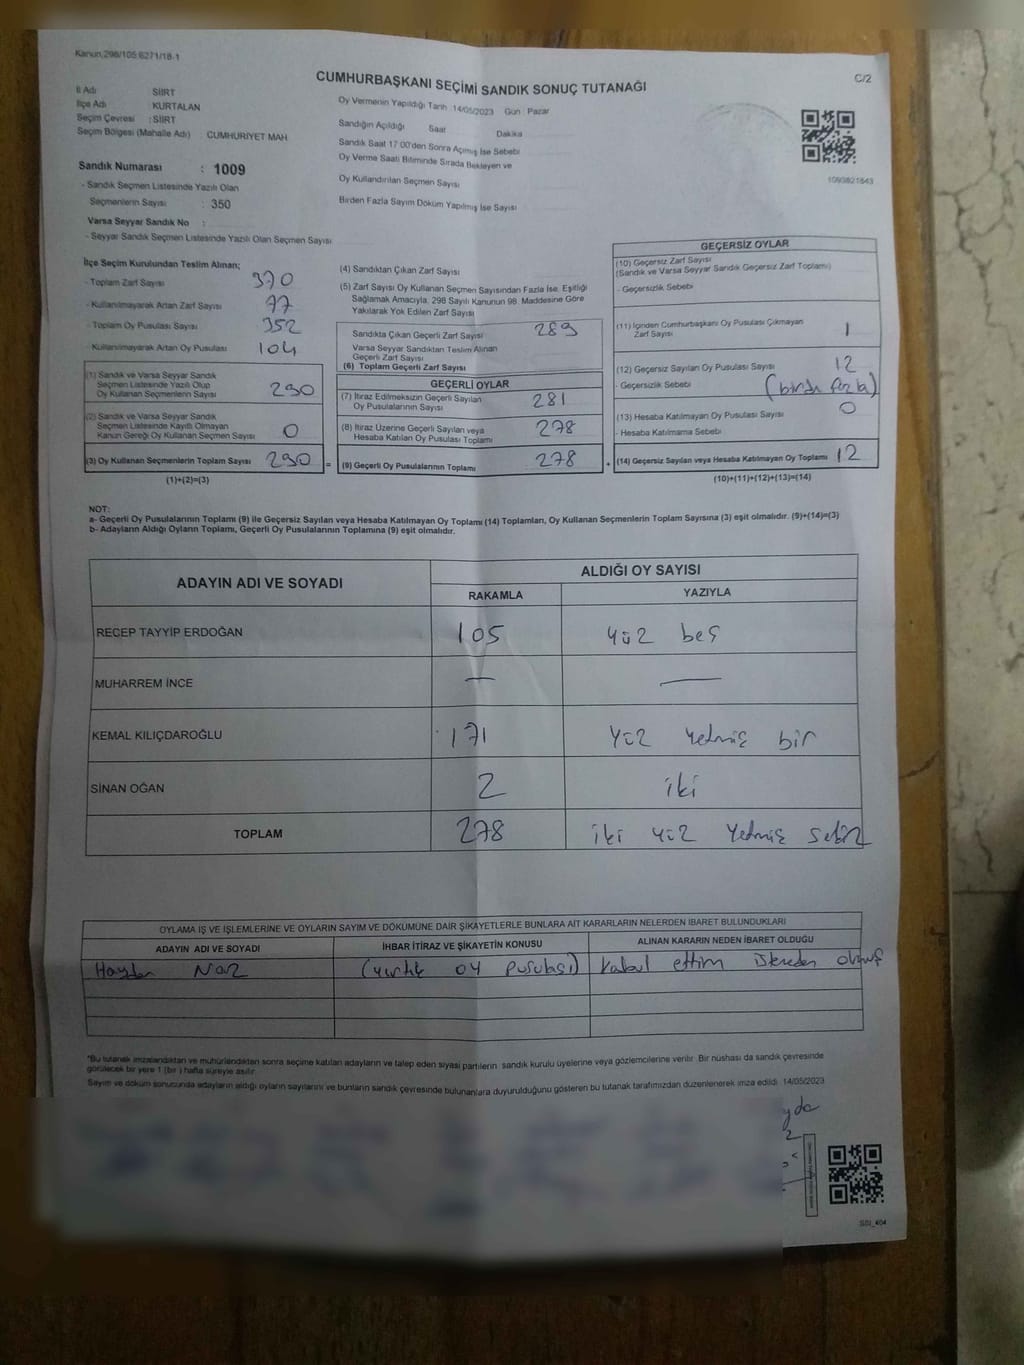 Kanun:298/105:6271/18-1
C/2
CUMHURBAŞKANI SEÇİMİ SANDIK SONUÇ TUTANAĞI
İl Adı SİİRT
İlçe Adı KURTALAN
Seçim Çevresi : SİİRT
Seçim Bölgesi (Mahalle Adı) CUMHURİYET MAH
Sandık Numarası : 1009
- Sandık Seçmen Listesinde Yazılı Olan
Seçmenlerin Sayısı : 350
Varsa Seyyar Sandık No :
- Seyyar Sandık Seçmen Listesinde Yazılı Olan Seçmen Sayısı
Oy Vermenin Yapıldığı Tarih 14/05/2023 Gün : Pazar
Sandığın Açıldığı Saat Dakika
Sandık Saat 17:00'den Sonra Açılmış İse Sebebi
Oy Verme Saati Bitiminde Sırada Bekleyen ve
Oy Kullandırılan Seçmen Sayısı
Birden Fazla Sayım Döküm Yapılmış İse Sayısı
1093821843
İlçe Seçim Kurulundan Teslim Alınan;
- Toplam Zarf Sayısı 370
- Kullanılmayarak Artan Zarf Sayısı 77
- Toplam Oy Pusulası Sayısı 352
- Kullanılmayarak Artan Oy Pusulası 104
(1) Sandık ve Varsa Seyyar Sandık
Seçmen Listesinde Yazılı Olup
Oy Kullanan Seçmenlerin Sayısı 290
(2) Sandık ve Varsa Seyyar Sandık
Seçmen Listesinde Kayıtlı Olmayan
Kanun Gereği Oy Kullanan Seçmen Sayısı 0
(3) Oy Kullanan Seçmenlerin Toplam Sayısı 290 =
(1)+(2)=(3)
(4) Sandıktan Çıkan Zarf Sayısı
(5) Zarf Sayısı Oy Kullanan Seçmen Sayısından Fazla İse, Eşitliği
Sağlamak Amacıyla, 298 Sayılı Kanunun 98. Maddesine Göre
Yakılarak Yok Edilen Zarf Sayısı
Sandıkta Çıkan Geçerli Zarf Sayısı 289
Varsa Seyyar Sandıktan Teslim Alınan
Geçerli Zarf Sayısı
(6) Toplam Geçerli Zarf Sayısı
GEÇERLİ OYLAR
(7) İtiraz Edilmeksizin Geçerli Sayılan
Oy Pusulalarının Sayısı 281
(8) İtiraz Üzerine Geçerli Sayılan veya
Hesaba Katılan Oy Pusulası Toplamı 278
(9) Geçerli Oy Pusulalarının Toplamı 278 +
GEÇERSİZ OYLAR
(10) Geçersiz Zarf Sayısı
(Sandık ve Varsa Seyyar Sandık Geçersiz Zarf Toplamı)
- Geçersizlik Sebebi
(11) İçinden Cumhurbaşkanı Oy Pusulası Çıkmayan
Zarf Sayısı 1
(12) Geçersiz Sayılan Oy Pusulası Sayısı 12
- Geçersizlik Sebebi (birden fazla)
(13) Hesaba Katılmayan Oy Pusulası Sayısı 0
- Hesaba Katılmama Sebebi
(14) Geçersiz Sayılan veya Hesaba Katılmayan Oy Toplamı 12
(10)+(11)+(12)+(13)=(14)
NOT:
a- Geçerli Oy Pusulalarının Toplamı (9) ile Geçersiz Sayılan veya Hesaba Katılmayan Oy Toplamı (14) Toplamları, Oy Kullanan Seçmenlerin Toplam Sayısına (3) eşit olmalıdır. (9)+(14)=(3)
b- Adayların Aldığı Oyların Toplamı, Geçerli Oy Pusulalarının Toplamına (9) eşit olmalıdır.
ADAYIN ADI VE SOYADI ALDIĞI OY SAYISI
RAKAMLA YAZIYLA
RECEP TAYYİP ERDOĞAN 105 yüz beş
MUHARREM İNCE — —
KEMAL KILIÇDAROĞLU 171 yüz yetmiş bir
SİNAN OĞAN 2 iki
TOPLAM 278 iki yüz yetmiş sekiz
OYLAMA İŞ VE İŞLEMLERİNE VE OYLARIN SAYIM VE DÖKÜMÜNE DAİR ŞİKAYETLERLE BUNLARA AİT KARARLARIN NELERDEN İBARET BULUNDUKLARI
ADAYIN ADI VE SOYADI İHBAR İTİRAZ VE ŞİKAYETİN KONUSU ALINAN KARARIN NEDEN İBARET OLDUĞU
Naz (yırtık oy pusulası) Kabul ettim
*Bu tutanak imzalandıktan ve mühürlendikten sonra seçime katılan adayların ve talep eden siyasi partilerin sandık kurulu üyelerine veya gözlemcilerine verilir. Bir nüshası da sandık çevresinde
görülecek bir yere 1 (bir) hafta süreyle asılır.
Sayım ve döküm sonucunda adayların aldığı oyların sayılarını ve bunların sandık çevresinde bulunanlara duyurulduğunu gösteren bu tutanak tarafımızdan düzenlenerek imza edildi. 14/05/2023